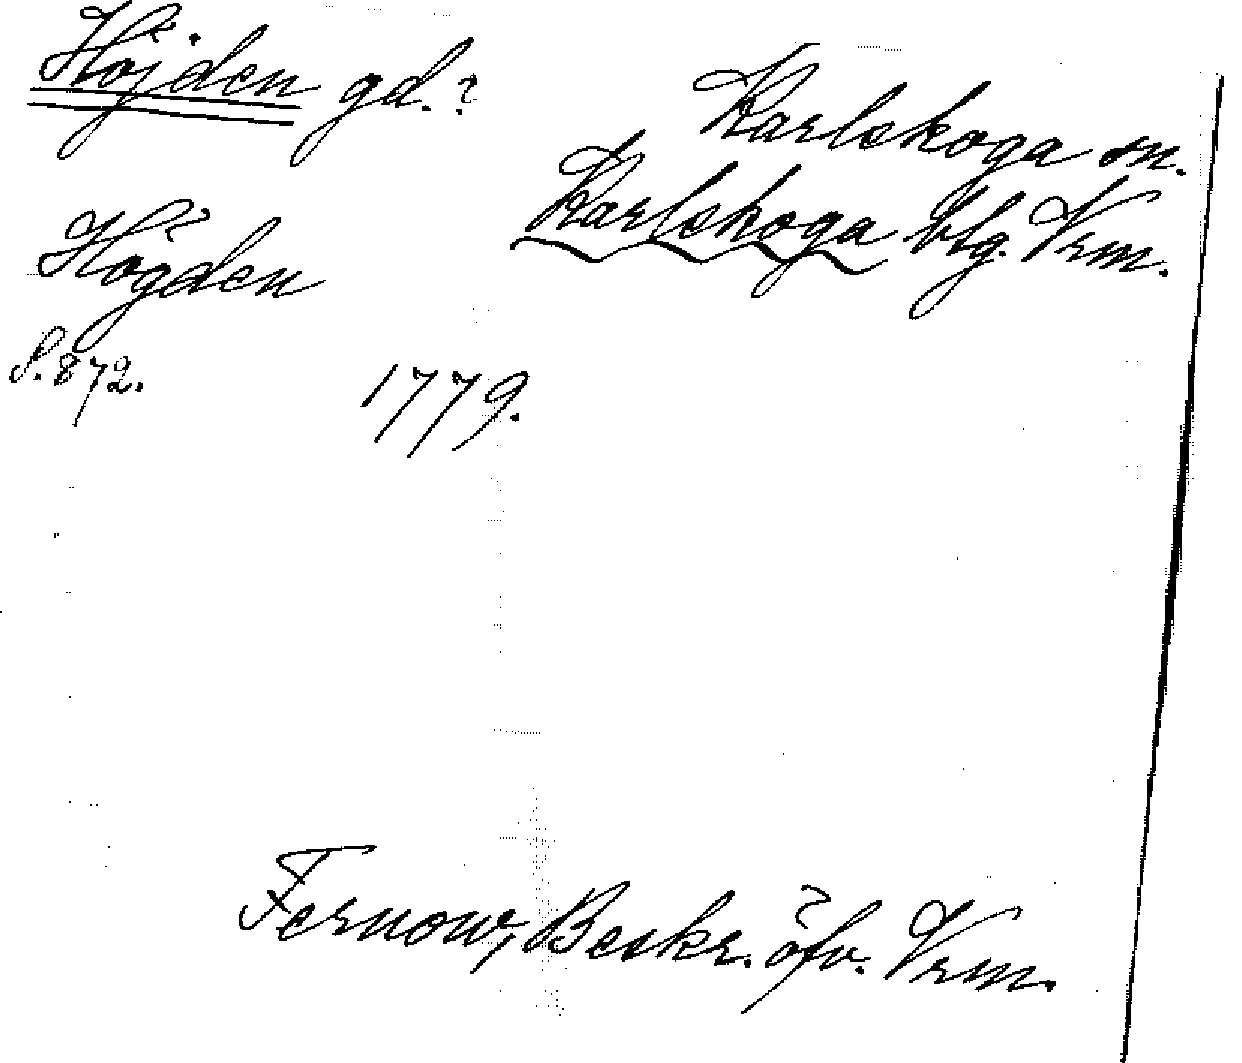 Höjden gd.?
Karlskoga sn.
Karlskoga blg. Vrm.
Högden
S. 872.
1779.
Fernow, Beskr. öfv. Vrm.